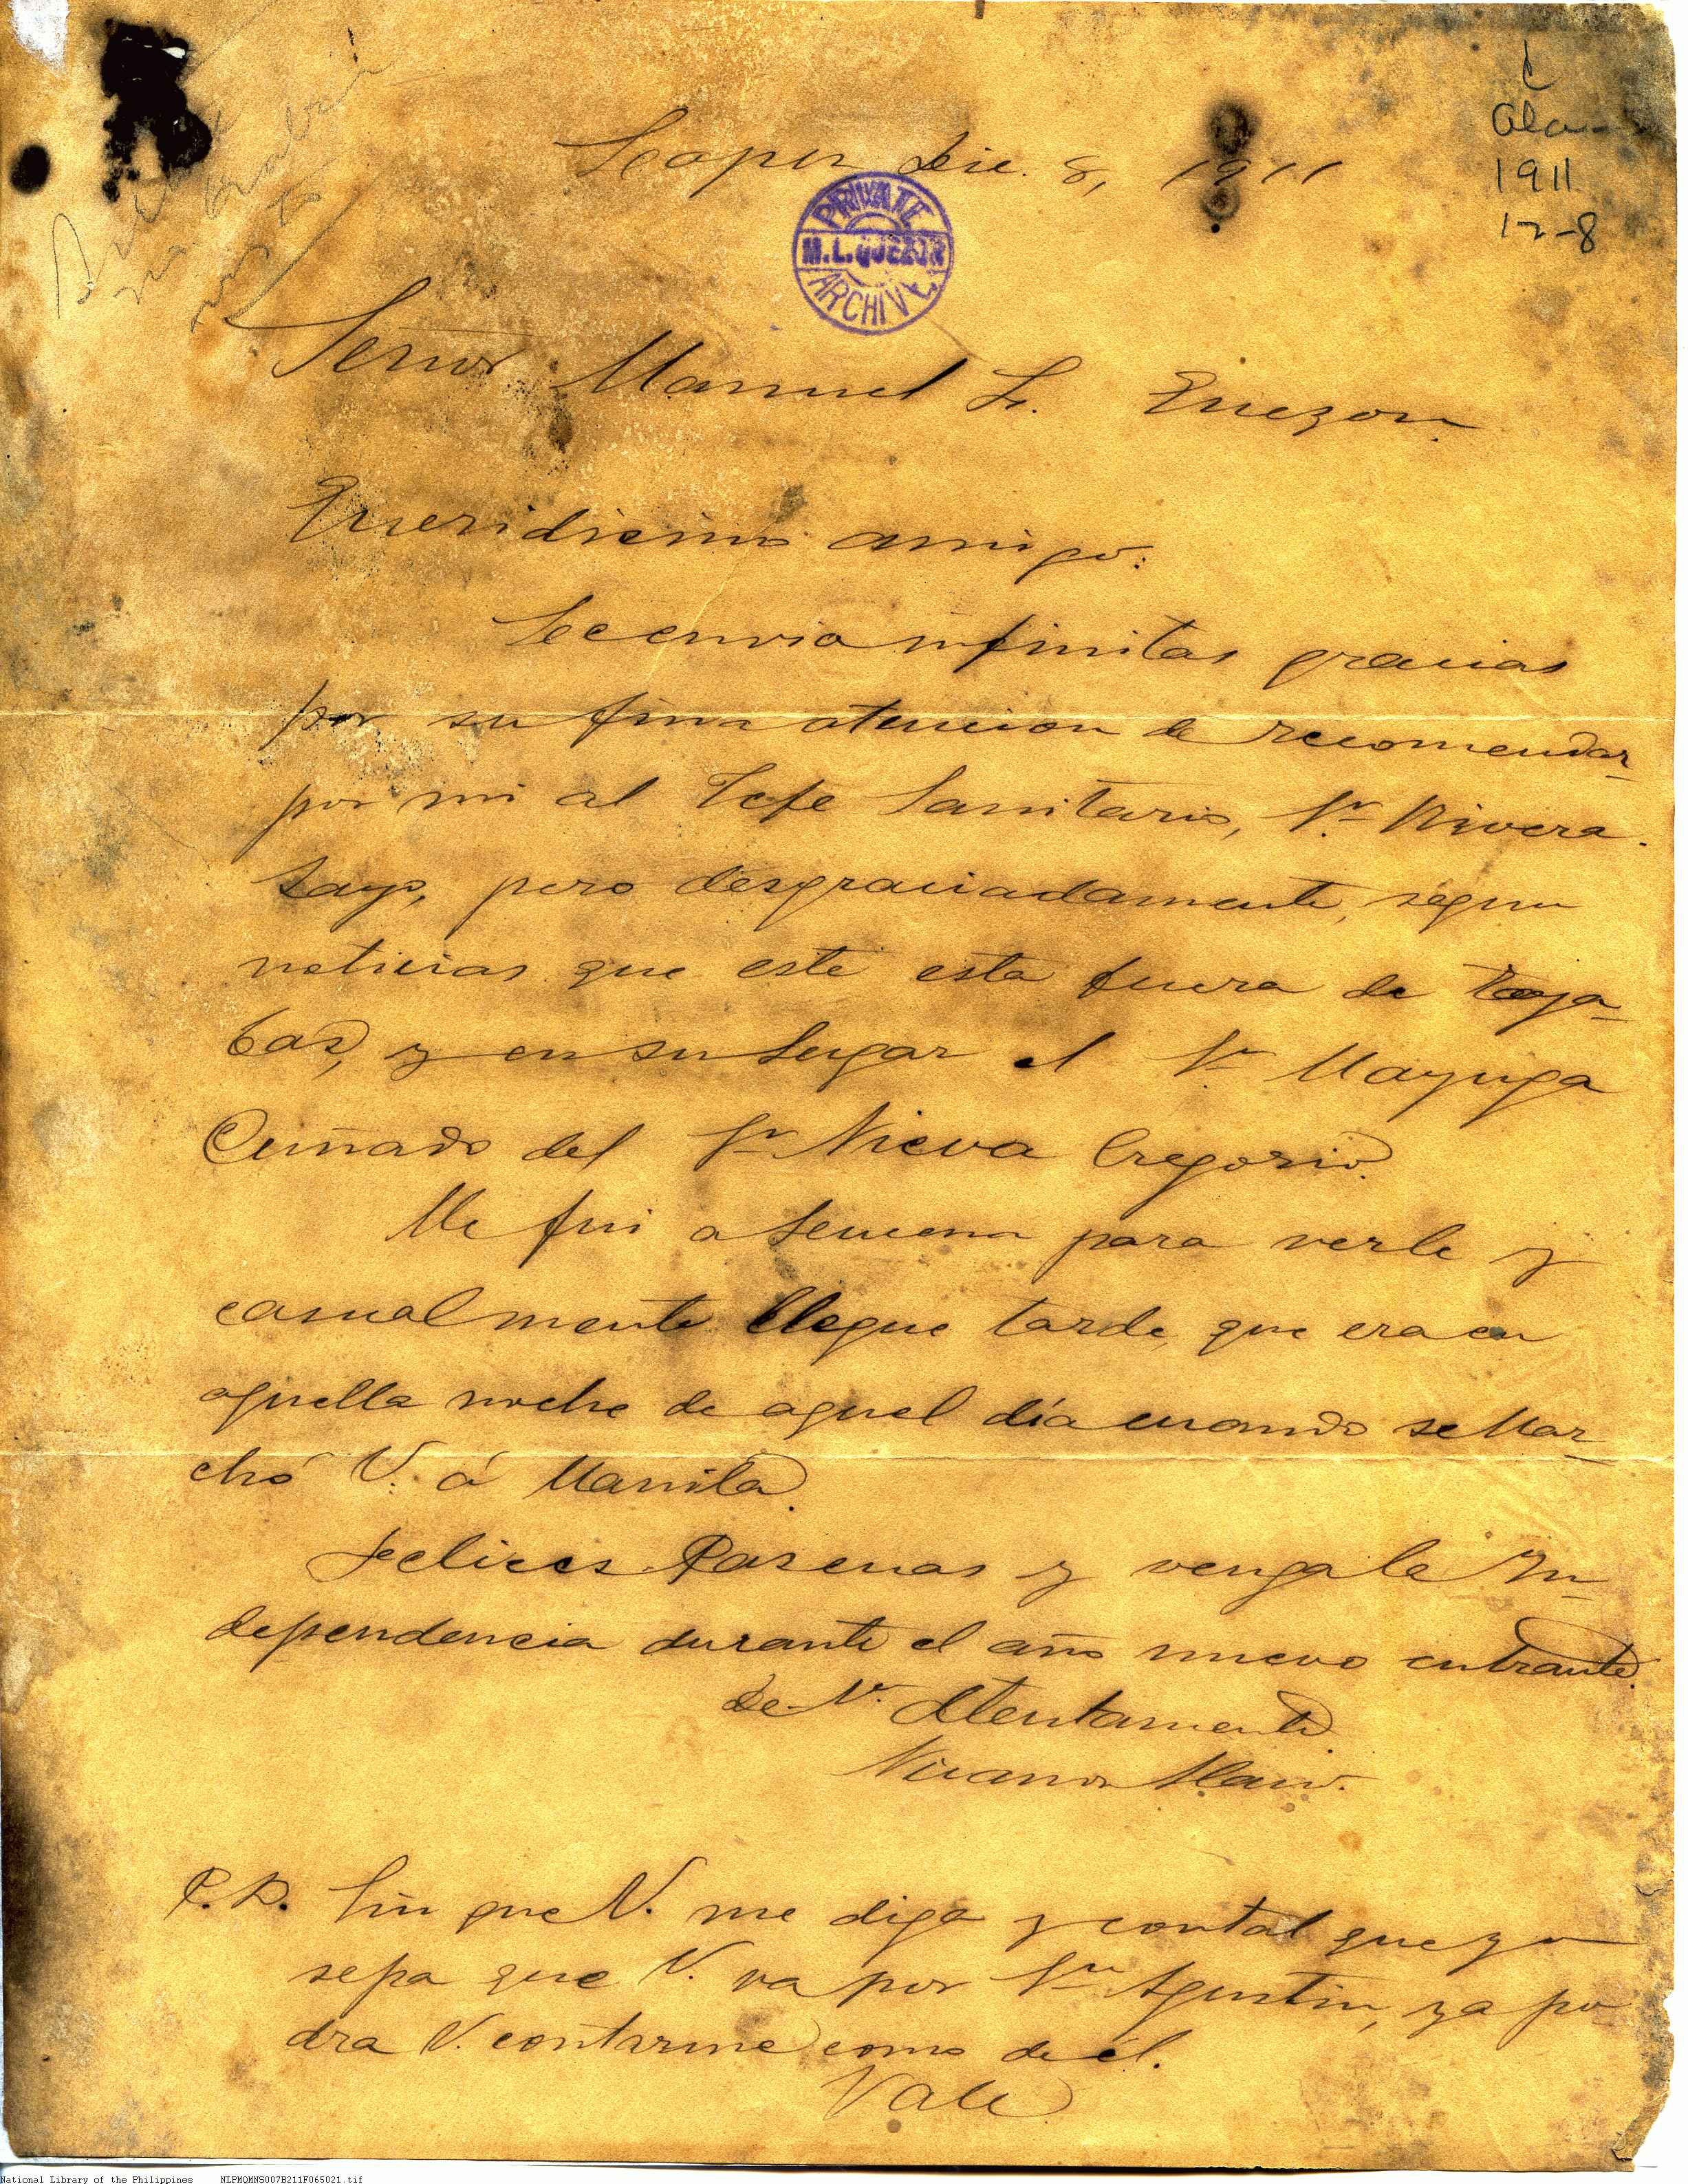 C
Ala-
1911
12-8
Lopez Dic. 8, 1911
PRIVATE
M.L. QUEZON
ARCHIVE
Señor Manuel L. Quezon.
Queridisimo amigo:
Le envio infinitas gracias
por su fina atencion de recomendar
por mi al Jefe Sanitario, Sr. Rivera.
Layo, pero desgraciadamente, segun
noticias que este esta fuera de Taya-
bas, y en su lugar el Sr. Mayuga
Cuñado del Sr. Nieva Gregorio.
Me fui a Lucena para verle y
casualmente llegue tarde, que era en
aquella noche de aquel día cuando se Mar-
chó V. á Manila.
Felices Pascuas y venga la In-
dependencia durante el año nuevo entrante.
de V. Atentamente.
Nicanor Alawi.
P.D. Sin que V. me diga y con tal que yo
sepa que V. va por Sn Agustin, ya po
dra V. contarme como de él.
Vale
National Library of the Philippines NLPMQMNS007B211F065021.tif